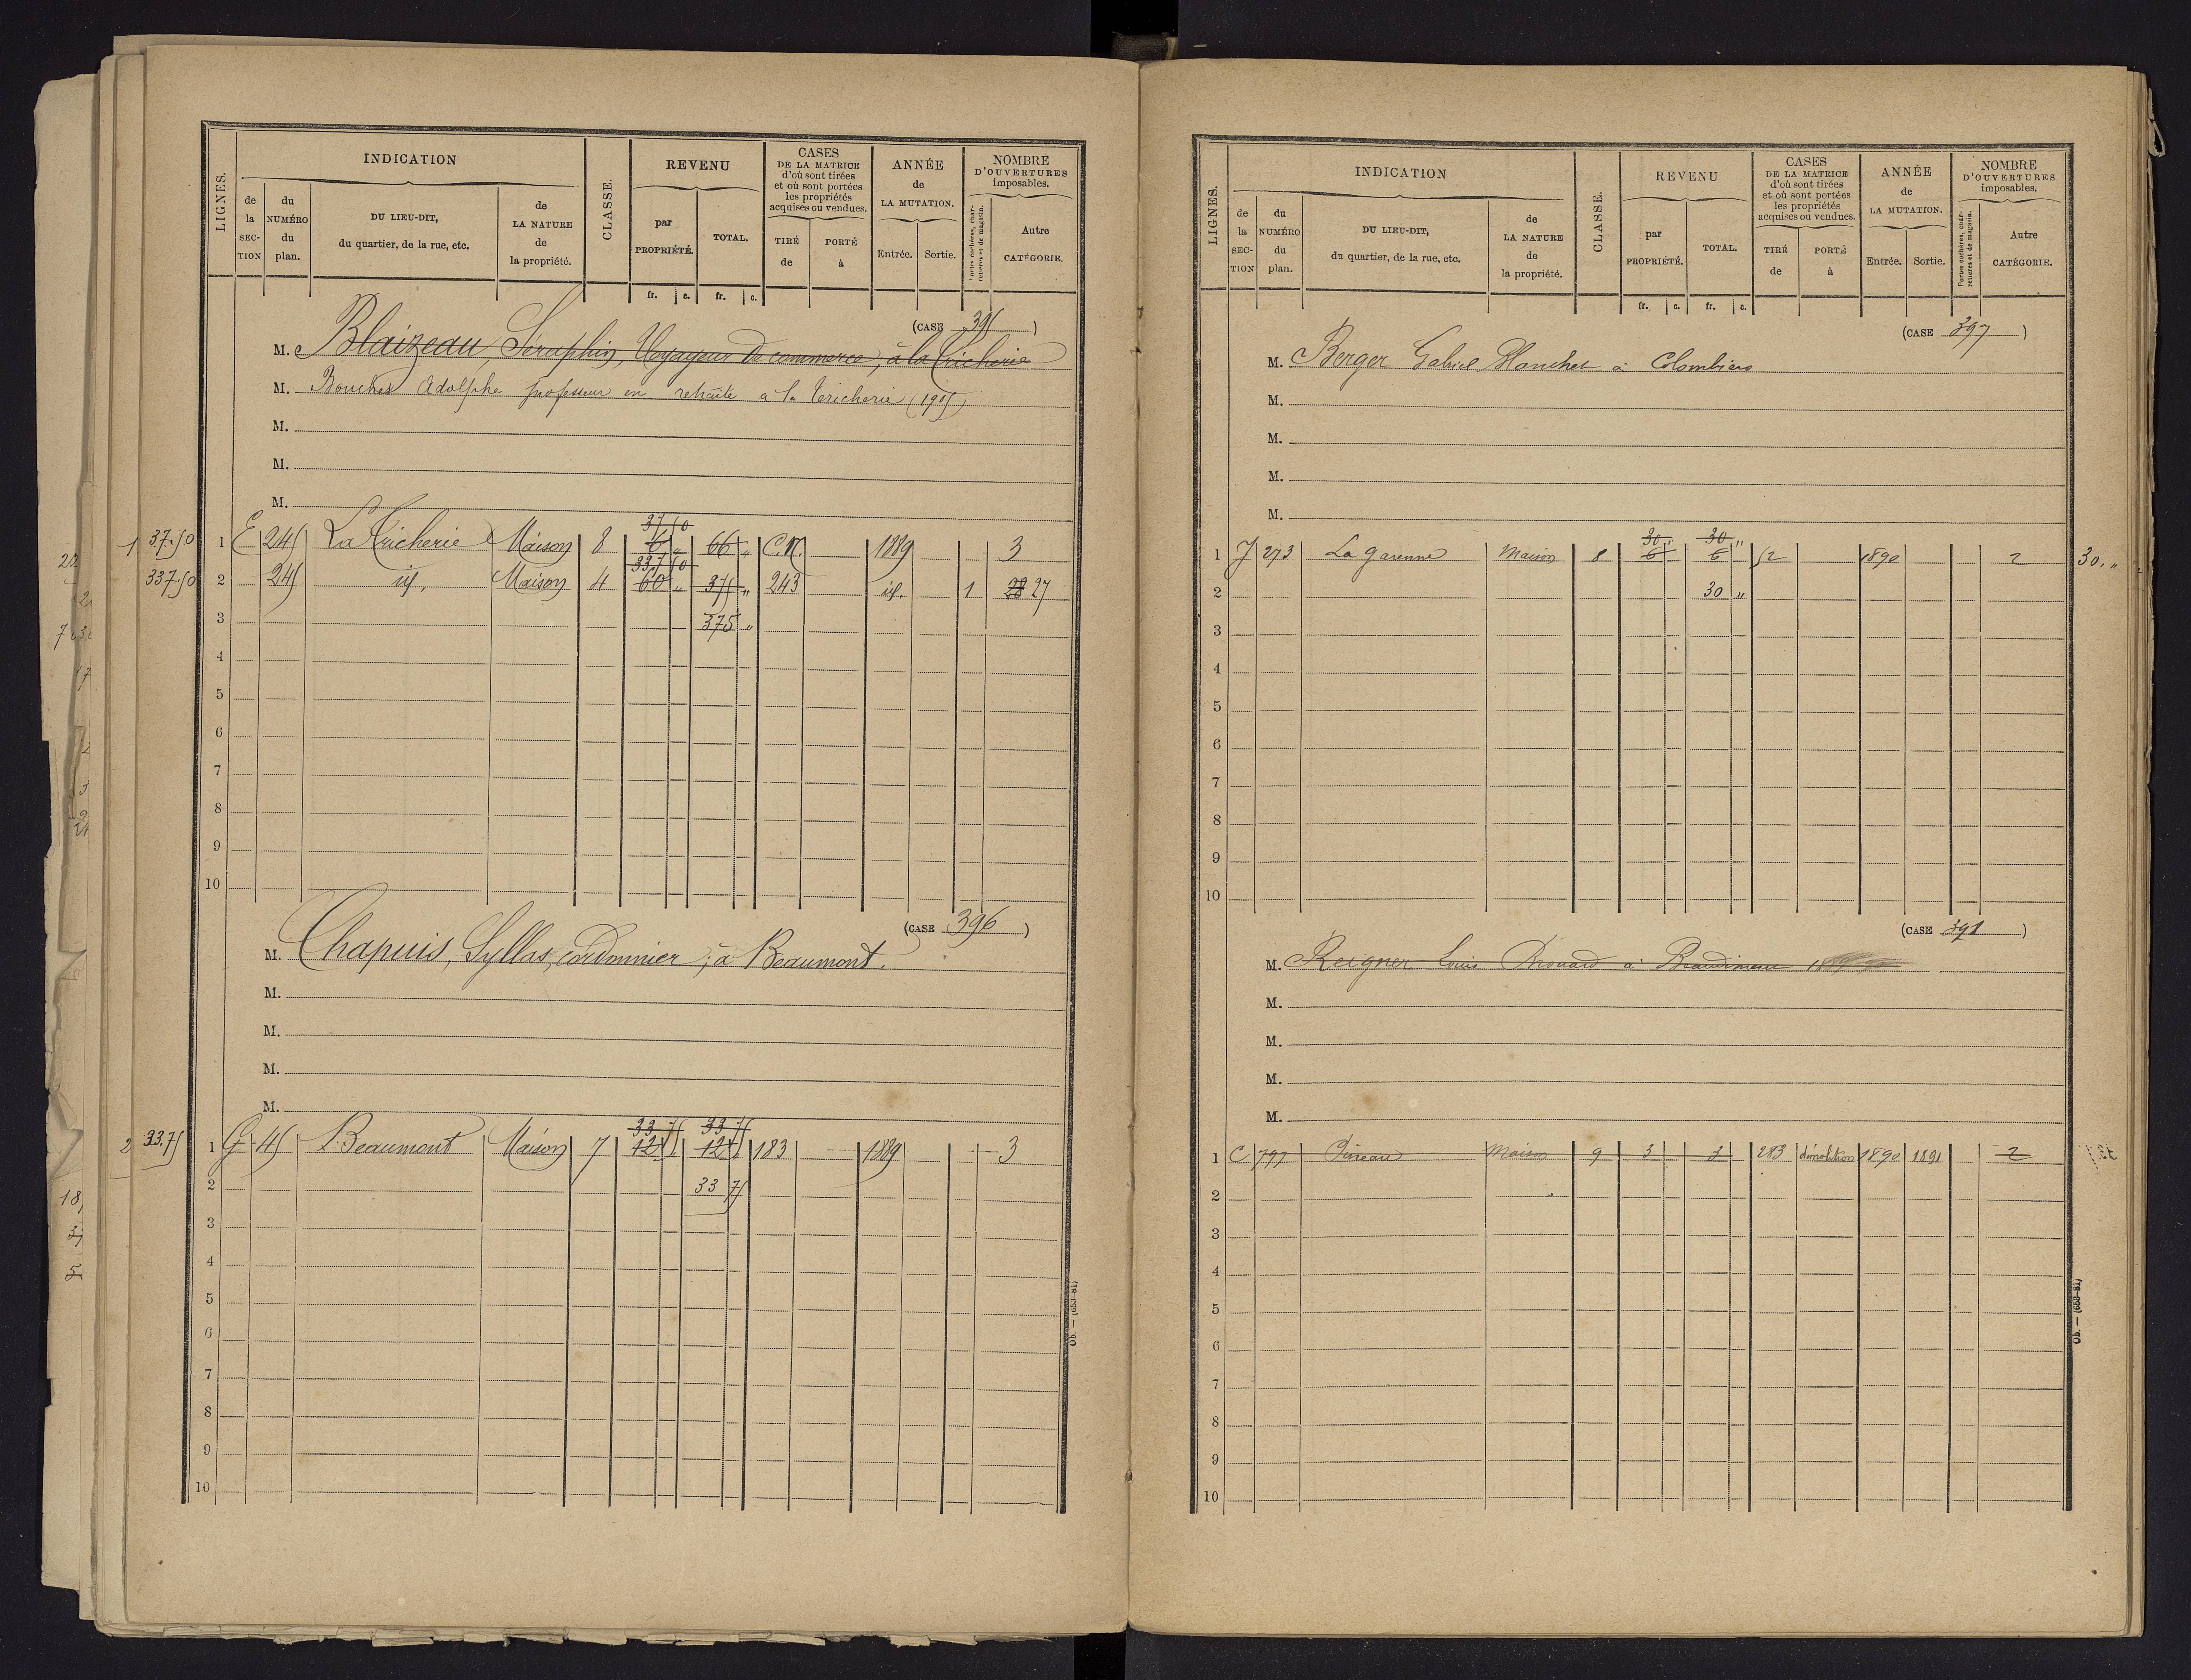 LIGNES.
INDICATION
de la SECTION
du NUMÉRO du plan.
DU LIEU-DIT, du quartier, de la rue, etc.
de LA NATURE de la propriété.
CLASSE.
REVENU
par PROPRIÉTÉ.
TOTAL.
CASES DE LA MATRICE d'où sont tirées et où sont portées les propriétés acquises ou vendues.
TIRÉ de
PORTÉ à
ANNÉE de LA MUTATION.
Entrée.
Sortie.
NOMBRE D'OUVERTURES imposables.
Portes cochères, charretières et de magasin.
Autre CATÉGORIE.
fr. c. fr. c.
(CASE 395)
M. Blaizeau, Séraphin, Voyageur de commerce, à la Tricherie
M. Bouchet Adolphe professeur en retraite a la Tricherie (1905)
M.
M.
M.
37 50
1 37.50 1 E 245 La Tricherie Maison 8 6 „ 66 „ C.N. 1889 3
337 50
337.50 2 245 id. Maison 4 60 „ 375 „ 243 id. 1 28 27
3 375 „
4
5
6
7
8
9
10
(CASE 396)
M. Chapuis, Syllas, cordonnier, à Beaumont.
M.
M.
M.
M.
33 75 33 75
2 33.75 1 G 45 Beaumont Maison 7 12 12 183 1889 3
2 33 75
3
4
5
6
7
8
9
10
Ob. — (653-81)
LIGNES.
INDICATION
de la SECTION
du NUMÉRO du plan.
DU LIEU-DIT, du quartier, de la rue, etc.
de LA NATURE de la propriété.
CLASSE.
REVENU
par PROPRIÉTÉ.
TOTAL.
CASES DE LA MATRICE d'où sont tirées et où sont portées les propriétés acquises ou vendues.
TIRÉ de
PORTÉ à
ANNÉE de LA MUTATION.
Entrée.
Sortie.
NOMBRE D'OUVERTURES imposables.
Portes cochères, charretières et de magasin.
Autre CATÉGORIE.
fr. c. fr. c.
(CASE 397)
M. Berger Gabriel Blanchet à Colombiers
M.
M.
M.
M.
30 „ 30 „
1 J 273 La garenne Maison 8 6 6 52 1890 2 30. „
2 30 „
3
4
5
6
7
8
9
10
(CASE 398)
M. Reigner Louis Drouard à
M.
M.
M.
M.
1 C 797 Pineau Maison 9 3 3 283 démolition 1890 1891 2
2
3
4
5
6
7
8
9
10
Ob. — (653-81)